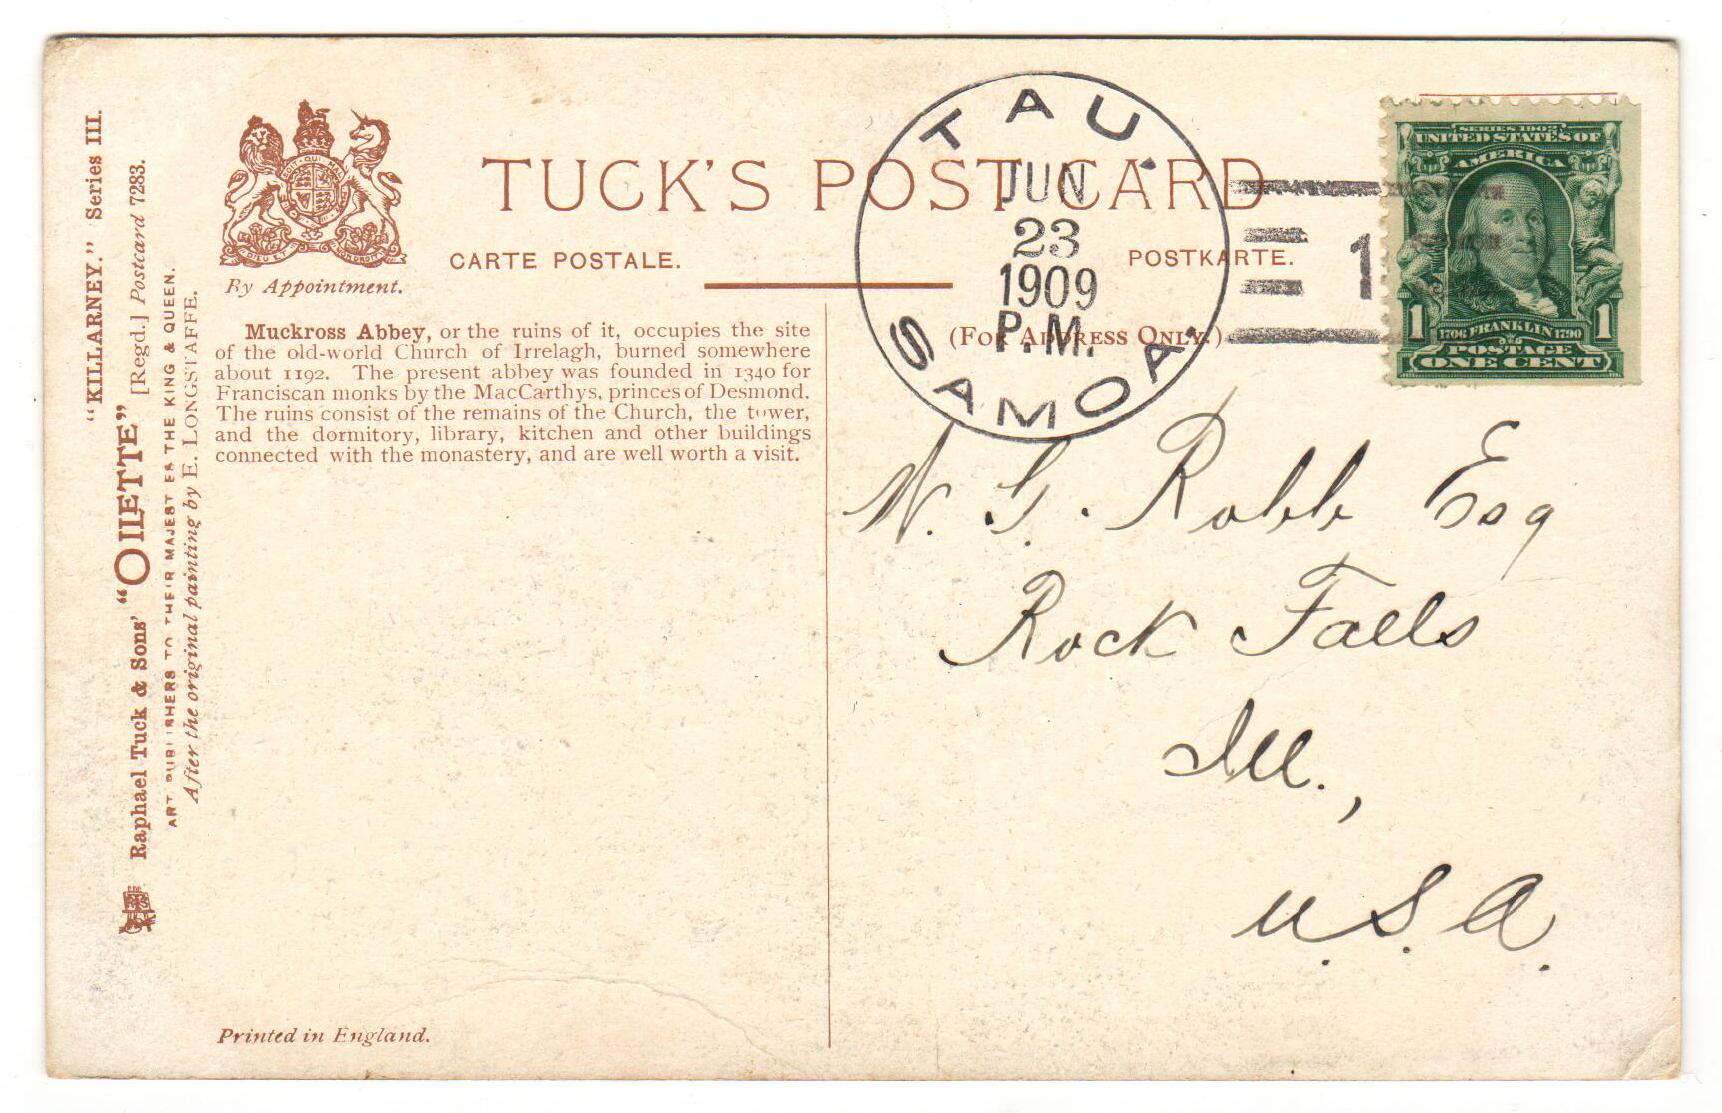 "KILLARNEY." Series III.
Raphael Tuck & Sons' "OILETTE" [Regd.] Postcard 7283.
ART PUBLISHERS TO THEIR MAJESTIES THE KING & QUEEN.
After the original painting by E. LONGSTAFFE.
By Appointment.
TUCK'S POST CARD
CARTE POSTALE.
POSTKARTE.
(FOR ADDRESS ONLY.)
Muckross Abbey, or the ruins of it, occupies the site
of the old-world Church of Irrelagh, burned somewhere
about 1192. The present abbey was founded in 1340 for
Franciscan monks by the MacCarthys, princes of Desmond.
The ruins consist of the remains of the Church, the tower,
and the dormitory, library, kitchen and other buildings
connected with the monastery, and are well worth a visit.
Printed in England.
TAU.
JUN
23
1909
P.M.
SAMOA.
1
SERIES 1902
UNITED STATES OF
AMERICA
1 1706 FRANKLIN 1790 1
POSTAGE
ONE CENT
W. G. Robb Esq
Rock Falls
Ill.,
U.S.A.